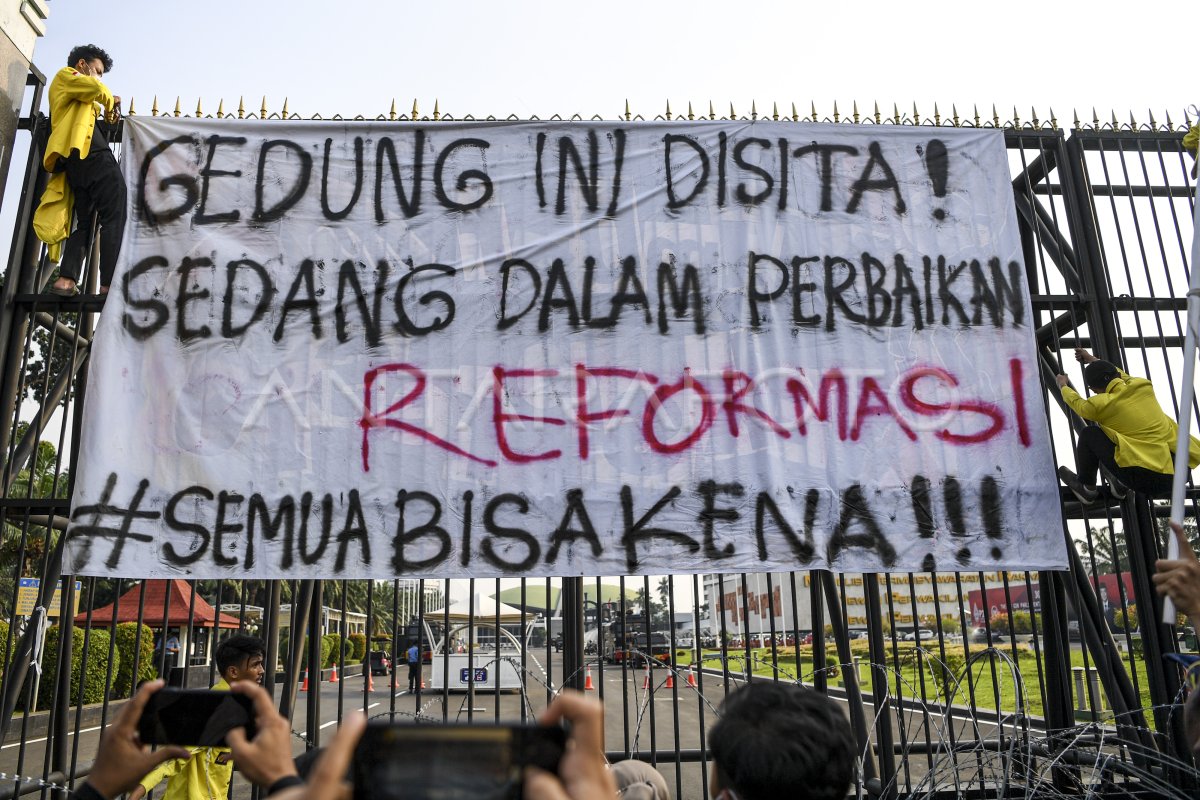 GEDUNG INI DISITA!
SEDANG DALAM PERBAIKAN
REFORMASI
#SEMUABISAKENA!!!
ANTARAFOTO